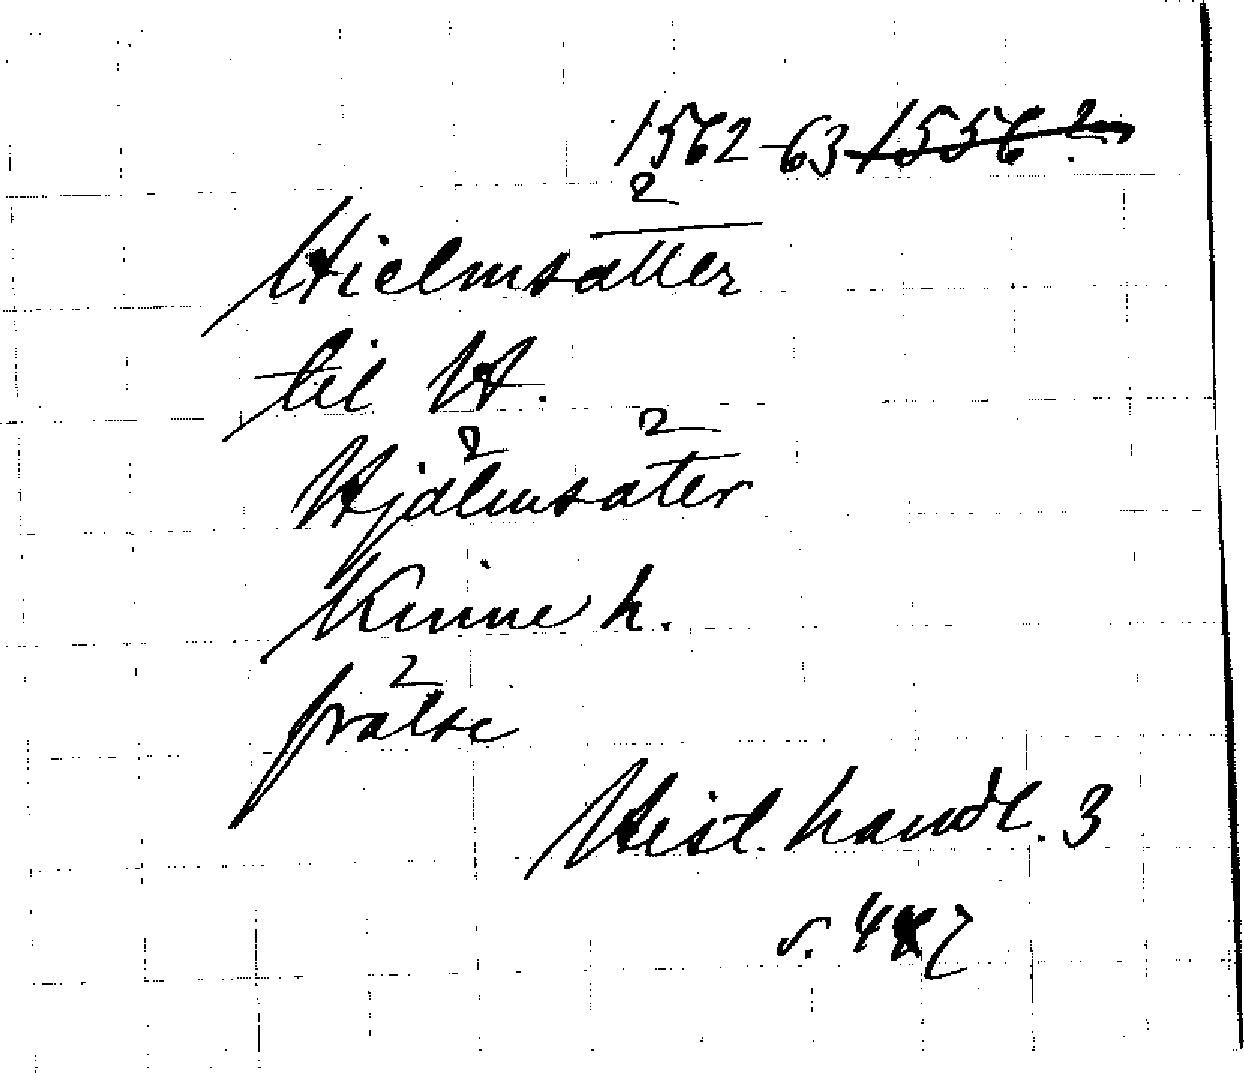 1562-63 1556?
Hielmsätter
til H.
Hjälmsäter
Kinne h.
frälse
Hist. handl. 3
s.